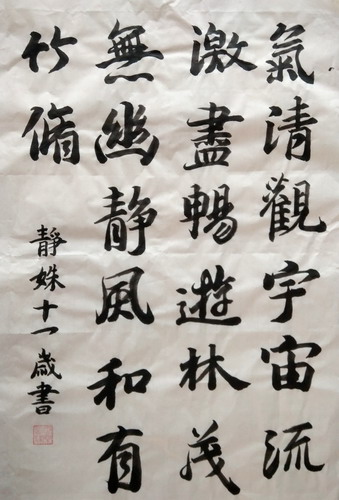 氣清觀宇宙流
激盡暢遊林茂
無幽静風和有
竹脩
靜姝十一歲書